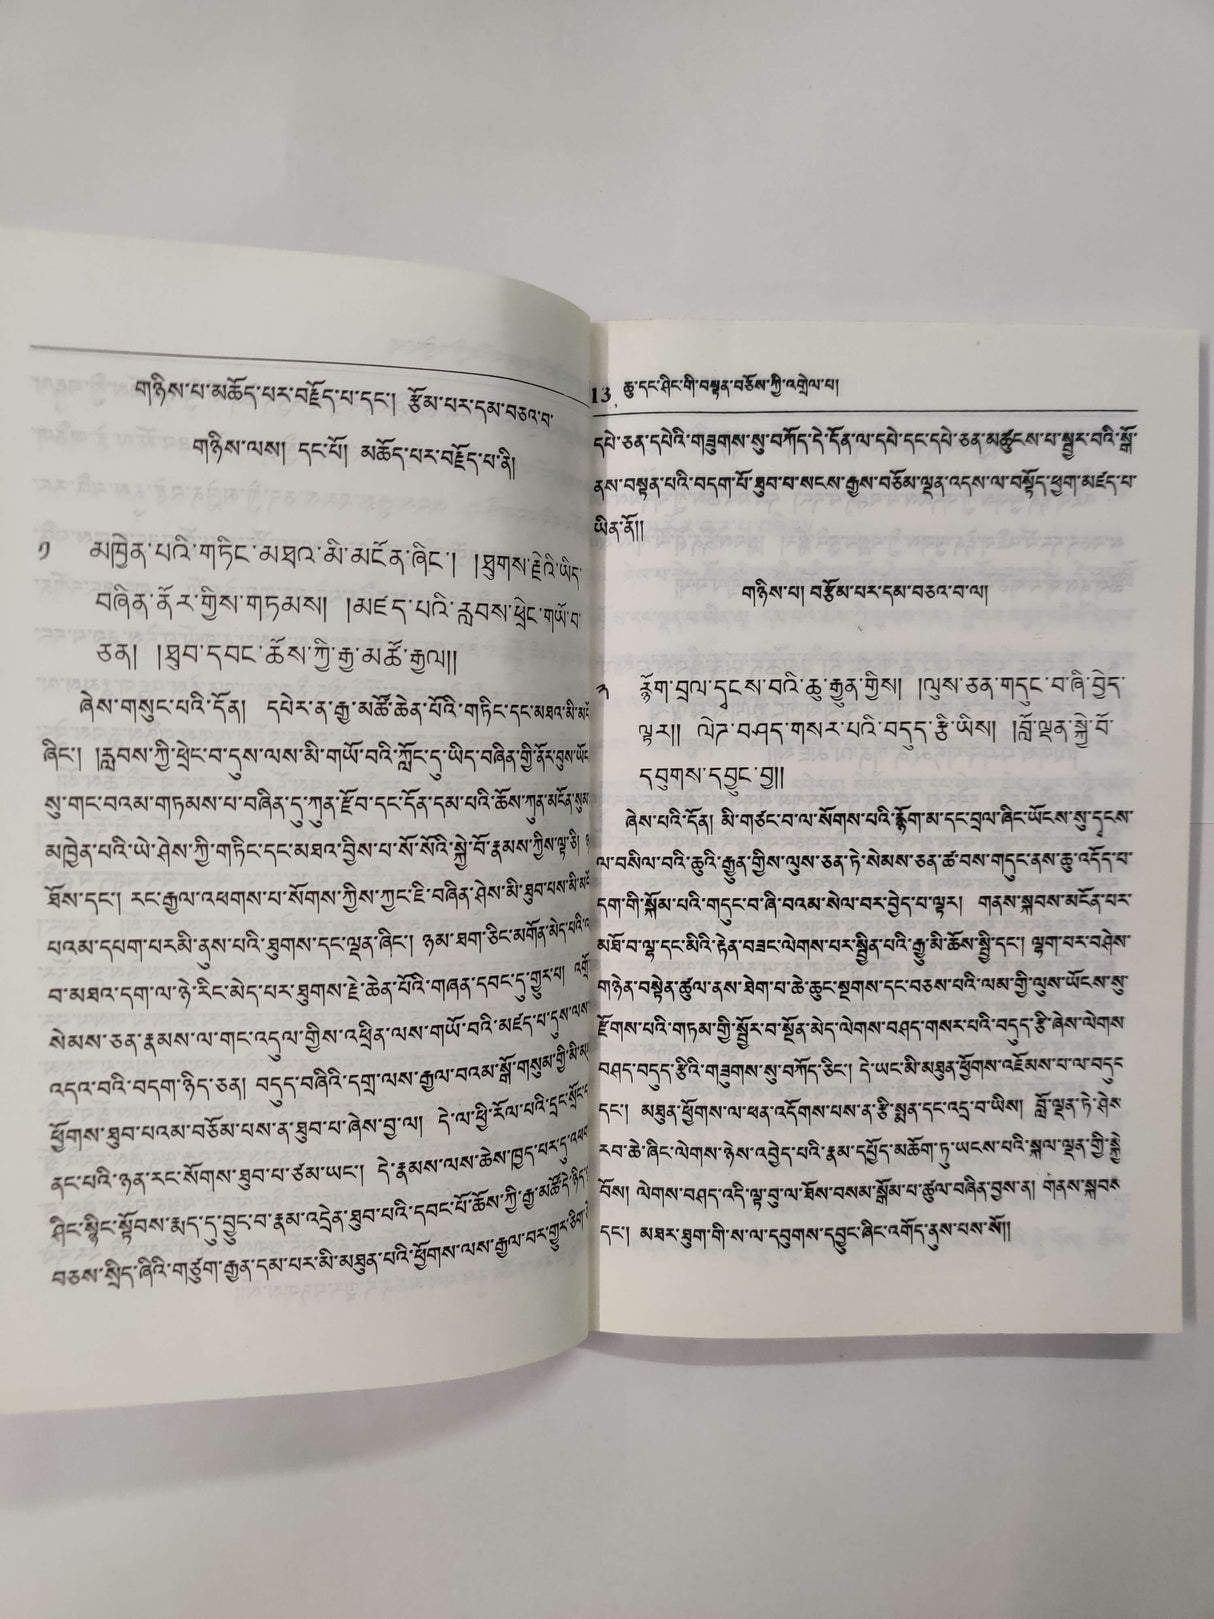 གཉིས་པ་མཆོད་པར་བརྗོད་པ་དང་། རྩོམ་པར་དམ་བཅའ་བ་
གཉིས་ལས། དང་པོ། མཆོད་པར་བརྗོད་པ་ནི།
༡ མཁྱེན་པའི་གཏིང་མཐའ་མི་མངོན་ཞིང་། །ཐུགས་རྗེའི་ཡིད་
བཞིན་ནོར་གྱིས་གཏམས། །མཛད་པའི་རླབས་ཕྲེང་གཡོ་བ་
ཅན། །ཐུབ་དབང་ཆོས་ཀྱི་རྒྱ་མཚོ་རྒྱལ།།
ཞེས་གསུང་པའི་དོན། དཔེར་ན་རྒྱ་མཚོ་ཆེན་པོའི་གཏིང་དང་མཐའ་མི་
ཞིང་། །རླབས་ཀྱི་ཕྲེང་བ་དུས་ལས་མི་གཡོ་བའི་ཀློང་དུ་ཡིད་བཞིན་གྱི་ནོར་བུས་
སུ་གང་བའམ་གཏམས་པ་བཞིན་དུ་ཀུན་རྫོབ་དང་དོན་དམ་པའི་ཆོས་ཀུན་མངོན་སུམ་
མཁྱེན་པའི་ཡེ་ཤེས་ཀྱི་གཏིང་དང་མཐའ་བྱིས་པ་སོ་སོའི་སྐྱེ་བོ་རྣམས་ཀྱིས་ལྟ་ཅི།
ཐོས་དང་། རང་རྒྱལ་འཕགས་པ་སོགས་ཀྱིས་ཀྱང་ཇི་བཞིན་ཤེས་མི་ཐུབ་པས་མི་
པའམ་དཔག་པར་མི་ནུས་པའི་ཐུགས་དང་ལྡན་ཞིང་། ཉམ་ཐག་ཅིང་མགོན་མེད་པའི་
བ་མཐའ་དག་ལ་ཉེ་རིང་མེད་པར་ཐུགས་རྗེ་ཆེན་པོའི་གཞན་དབང་དུ་གྱུར་པ། འགྲོ་
སེམས་ཅན་རྣམས་ལ་གང་འདུལ་གྱིས་འཕྲིན་ལས་གཡོ་བའི་མཛད་པ་དུས་ལས་
འདའ་བའི་བདག་ཉིད་ཅན། བདུད་བཞིའི་དགྲ་ལས་རྒྱལ་བའམ་སྒོ་གསུམ་གྱི་མི་
ཕྱོགས་ཐུབ་པའམ་བཅོམ་པས་ན་ཐུབ་པ་ཞེས་བྱ་ལ། དེ་ལ་ཕྱི་རོལ་པའི་དྲང་སྲོང་
ནང་པའི་ཉན་རང་སོགས་ཐུབ་པ་ཙམ་ཡང་། དེ་རྣམས་ལས་ཆེས་ཁྱད་པར་དུ་འཕགས་
ཤིང་སྙིང་སྟོབས་རྨད་དུ་བྱུང་བ་རྣམ་འདྲེན་ཐུབ་པའི་དབང་པོ་ཆོས་ཀྱི་རྒྱ་མཚོ་དེ་ཉིད་
བཅས་སྲིད་ཞིའི་གཙུག་རྒྱན་དམ་པར་མི་མཐུན་པའི་ཕྱོགས་ལས་རྒྱལ་བར་གྱུར་ཅིག་
13 ཆུ་དང་ཤིང་གི་བསྟན་བཅོས་ཀྱི་འགྲེལ་པ།
དཔེ་ཅན་དཔེའི་གཟུགས་སུ་བཀོད་དེ་དོན་ལ་དཔེ་དང་དཔེ་ཅན་མཚུངས་པ་སྦྱར་བའི་སྒོ་
ནས་བསྟན་པའི་བདག་པོ་ཐུབ་པ་སངས་རྒྱས་བཅོམ་ལྡན་འདས་ལ་བསྟོད་ཕྱག་མཛད་པ་
ཡིན་ནོ།།
གཉིས་པ། བརྩོམ་པར་དམ་བཅའ་བ་ལ།
༢ རྙོག་བྲལ་དྭངས་བའི་ཆུ་རྒྱུན་གྱིས། །ལུས་ཅན་གདུང་བ་ཞི་བྱེད་
ལྟར།། ལེགས་བཤད་གསར་པའི་བདུད་རྩི་ཡིས། །བློ་ལྡན་སྐྱེ་བོ་
དབུགས་དབྱུང་བྱ།།
ཞེས་པའི་དོན། མི་གཙང་བ་ལ་སོགས་པའི་རྙོག་མ་དང་བྲལ་ཞིང་ཡོངས་སུ་དྭངས་
ལ་བསིལ་བའི་ཆུའི་རྒྱུན་གྱིས་ལུས་ཅན་ཏེ་སེམས་ཅན་ཚ་བས་གདུང་ནས་ཆུ་འདོད་པ་
དག་གི་སྐོམ་པའི་གདུང་བ་ཞི་བའམ་སེལ་བར་བྱེད་པ་ལྟར། གནས་སྐབས་མངོན་པར་
མཐོ་བ་ལྷ་དང་མིའི་རྟེན་བཟང་ལེགས་པར་སྦྱིན་པའི་རྒྱུ་མི་ཆོས་སྤྱི་དང་། ལྷག་པར་བཤེས་
གཉེན་བསྟེན་ཚུལ་ནས་ཐེག་པ་ཆེ་ཆུང་སྔགས་དང་བཅས་པའི་ལམ་གྱི་ལུས་ཡོངས་སུ་
རྫོགས་པའི་གཏམ་གྱི་སྦྱོར་བ་སྔོན་མེད་ལེགས་བཤད་གསར་པའི་བདུད་རྩི་ཞེས་ལེགས་
བཤད་བདུད་རྩིའི་གཟུགས་སུ་བཀོད་ཅིང་། དེ་ཡང་མི་མཐུན་ཕྱོགས་འཇོམས་པ་ལ་བདུད་
དང་། མཐུན་ཕྱོགས་ལ་ཕན་འདོགས་པས་ན་རྩི་སྨན་དང་འདྲ་བ་ཡིས། བློ་ལྡན་ཏེ་ཤེས་
རབ་ཆེ་ཞིང་ལེགས་ཉེས་འབྱེད་པའི་རྣམ་དཔྱོད་མཆོག་ཏུ་ཡངས་པའི་སྐལ་ལྡན་གྱི་སྐྱེ་
བོས། ལེགས་བཤད་འདི་ལྟ་བུ་ལ་ཐོས་བསམ་སྒོམ་པ་ཚུལ་བཞིན་བྱས་ན། གནས་སྐབས་
དང་། མཐར་ཐུག་གི་ས་ལ་དབུགས་དབྱུང་ཞིང་འགོད་ནུས་པས་སོ།།